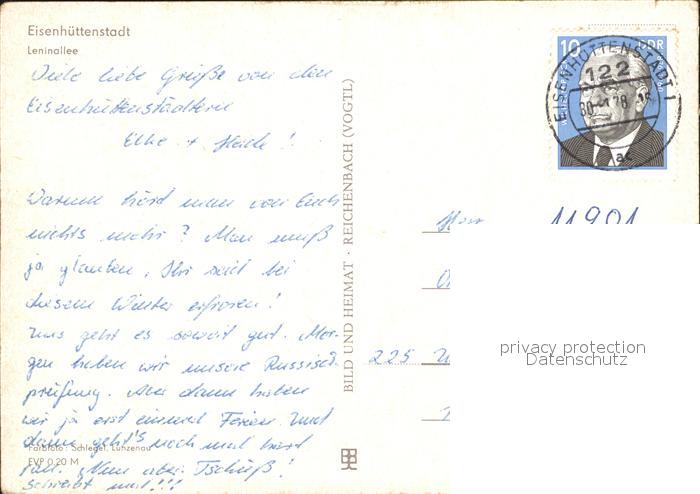 Eisenhüttenstadt
Leninallee
Viele liebe Grüße von den
Eisenhüttenstädtern
Elke +
Warum hört man von Euch
nichts mehr? Man muß
ja glauben, Ihr seid bei
diesem Winter erfroren!
Uns geht es soweit gut. Mor-
gen haben wir unsere Russisch
prüfung. Aber dann haben
wir ja erst einmal Ferien. Und
dann geht's noch mal hart
ran. Nun aber Tschüß!
Schreibt mal!!!
Farbfoto: Schlegel, Lunzenau
EVP 0,20 M
BILD UND HEIMAT · REICHENBACH (VOGTL)
10 DDR
EISENHÜTTENSTADT 1
122
ac
11901
Herr
225
privacy protection
Datenschutz